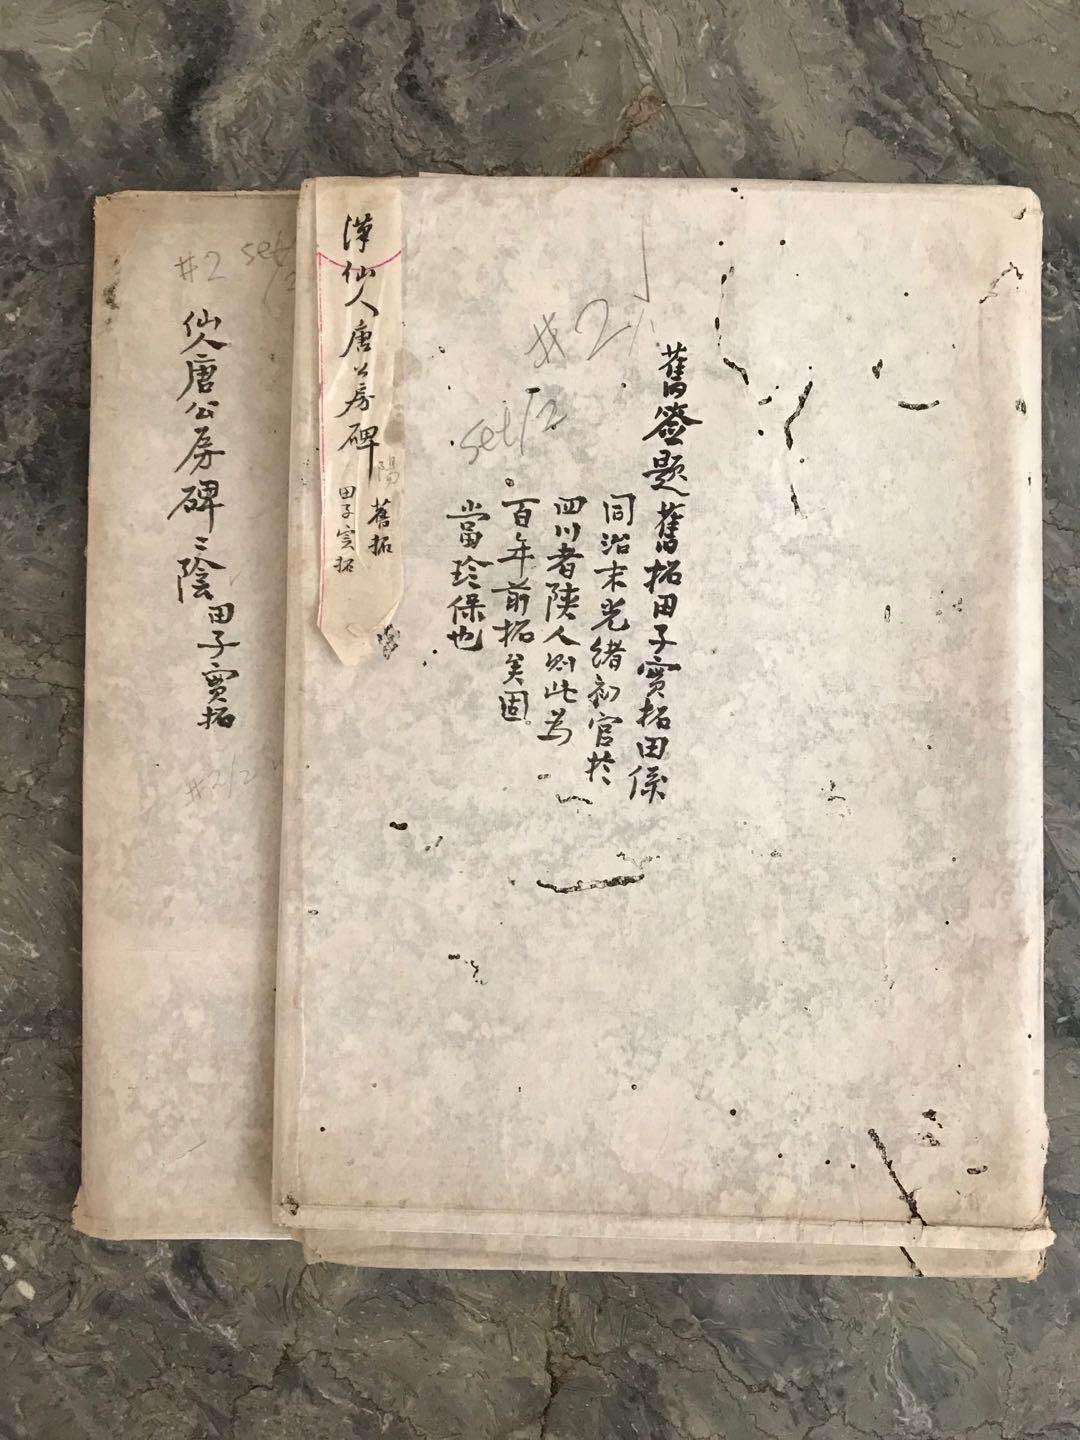 舊簽題舊拓田子實拓田係
同治末光緒初官於
四川者陝人則此為
百年前拓矣固
當珍保也
#2
set/2
漢仙人唐公房碑
陽
舊拓
田子實拓
#2 set
仙人唐公房碑〻陰
田子實拓
#2/2